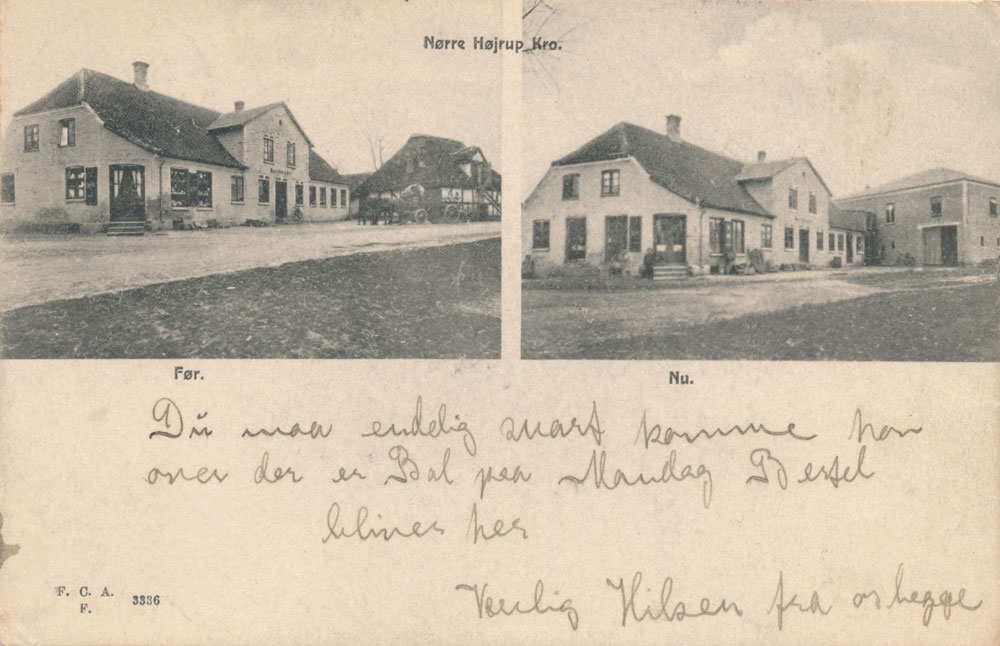 Nørre Højrup Kro.
Før.
Nu.
Du maa endelig snart komme her
over der er Bal paa Mandag Bertel
bliver her
Venlig Hilsen fra os begge
F. C. A.
F.
3336